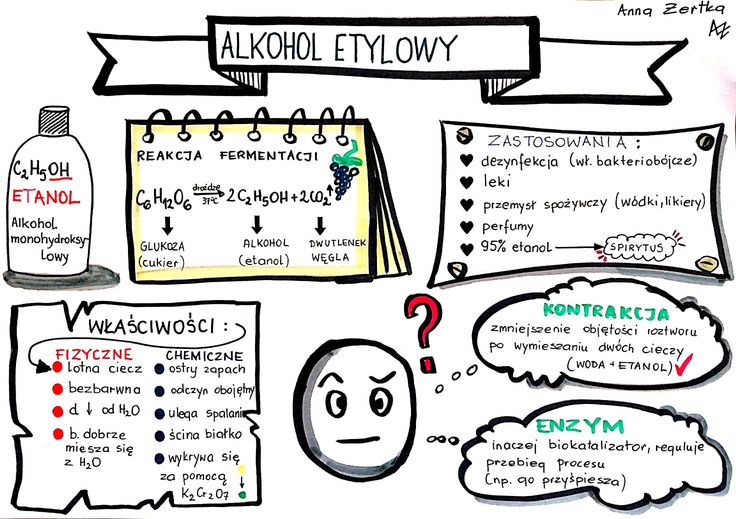 Anna Zertka
AŻ
ALKOHOL ETYLOWY
C2H5OH
ETANOL
Alkohol
monohydroksy-
lowy
REAKCJA FERMENTACJI
C6H12O6 drożdże 37°C → 2C2H5OH + 2CO2↑
GLUKOZA (cukier)
ALKOHOL (etanol)
DWUTLENEK WĘGLA
ZASTOSOWANIA:
dezynfekcja (wł. bakteriobójcze)
leki
przemysł spożywczy (wódki, likiery)
perfumy
95% etanol → SPIRYTUS
WŁAŚCIWOŚCI:
FIZYCZNE
lotna ciecz
bezbarwna
d ↓ od H2O
b. dobrze
miesza się
z H2O
CHEMICZNE
ostry zapach
odczyn obojętny
ulega spalaniu
ścina białko
wykrywa się
za pomocą
K2Cr2O7
?
KONTRAKCJA
zmniejszenie objętości roztworu
po wymieszaniu dwóch cieczy
(WODA + ETANOL)
ENZYM
inaczej biokatalizator, reguluje
przebieg procesu
(np. go przyśpiesza)